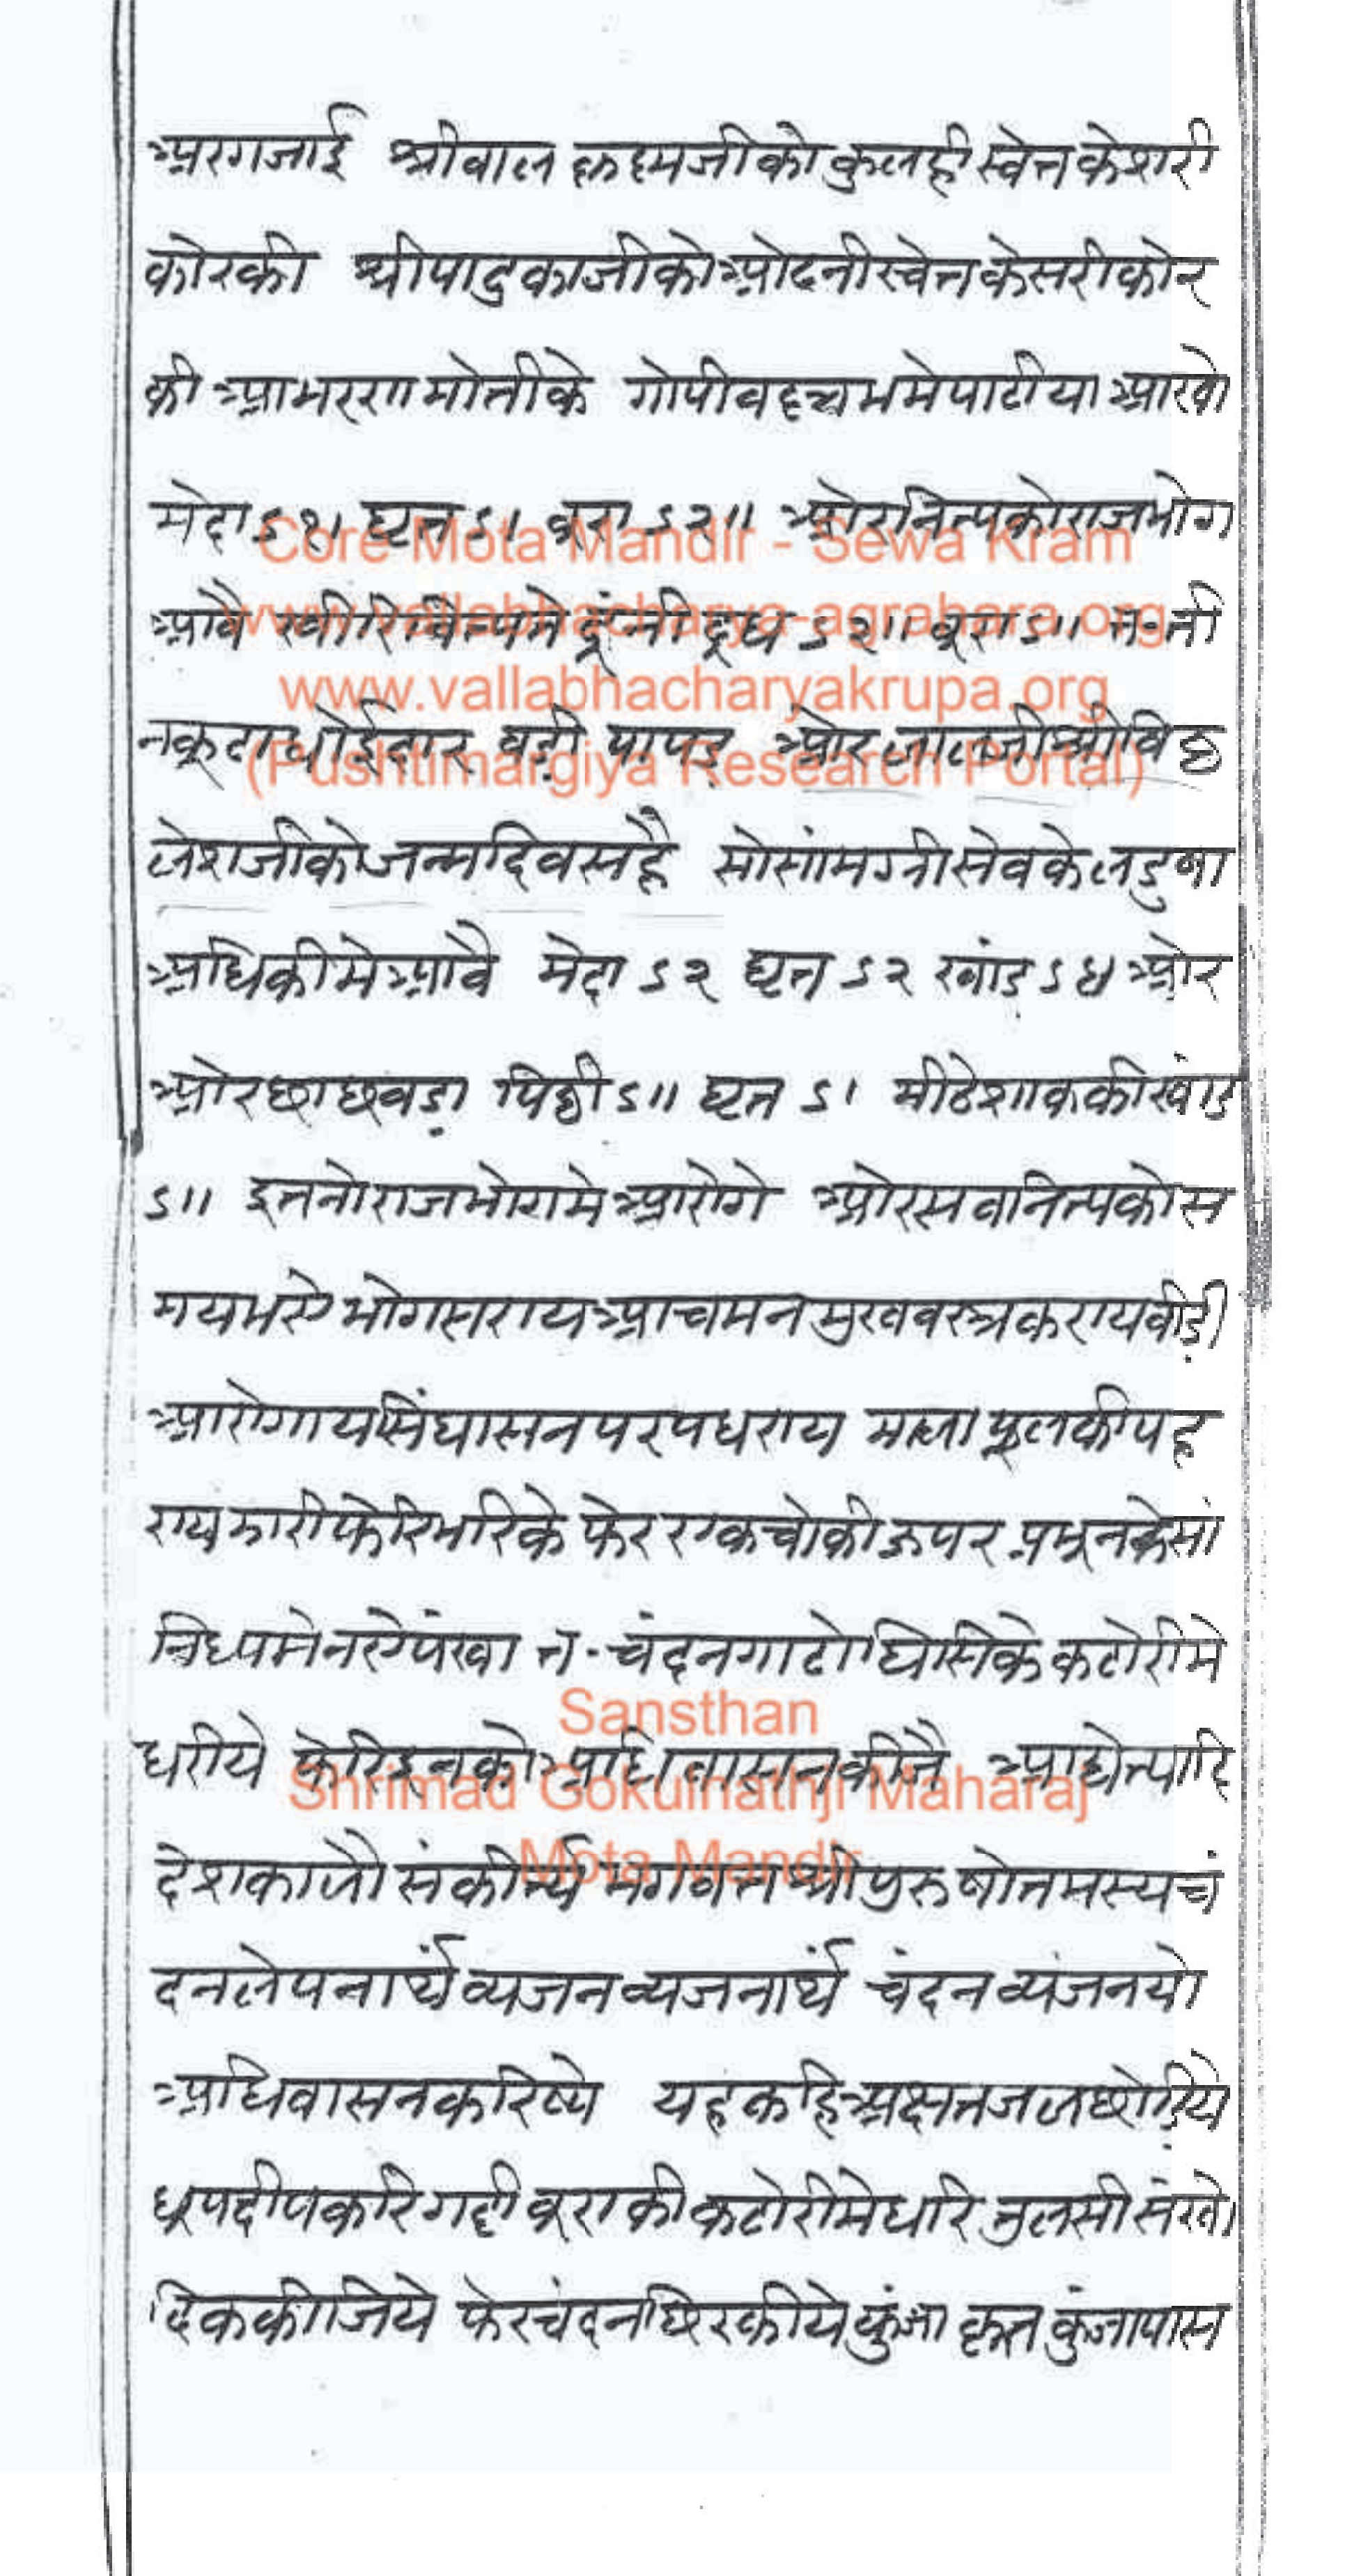 अरगजाई श्रीबाल कृष्णजीको कुलही स्वेत केशरी
कोरकी श्रीपादुकाजीको ओढनी स्वेत केसरी कोर
की आभरण मोतीके गोपीवल्लभमे पाटीया आखो
मेदा ऽ१। घृत ऽ। बूरा ऽ२॥ ओर नित्यको राजभोग
आवै खीरि नित्यमे दूंनी दूध ऽ२॥ बूरा ऽ॥ त॰ ती
नकूटा धोईदार बडी पापड ओर लालजी श्रीविठ्ठ
लेशजीको जन्मदिवस है सो सांमग्री सेवके लडुवा
अधिकीमे आवै मेदा ऽ२ घृत ऽ२ खांड ऽ४ ओर
ओर छाछवडा पिठ्ठी ऽ॥ घृत ऽ। मीठे शाककी खांड
ऽ॥ इतनो राजभोगमे आरोगे ओर सब नित्यको स
मय भये भोग सराय आचमन मुखवस्त्र कराय बीडी
आरोगाय सिंघासन पर पधराय माला फूलकी पह
राय झारी फेरि भरिके फेर एक चोकी ऊपर प्रभूनके सां
निध्यमे नये पंखा त॰ चंदन गाटो घिसिके कटोरीमे
धरीये फेरि इनको अधिवासन कीजै आद्येत्यादि
देशकालौ संकीर्त्य भगवत श्री पुरुषोत्तमस्य चं
दनलेपनार्थं व्यजन व्यजनार्थं चंदन व्यंजनयो
अधिवासन करिष्ये यह कहि अक्षत जल छोडिये
धूप दीप करि गद्दी बूराकी कटोरीमे धरि तुलसी संखो
दिक कीजिये फेर चंदन छिरकीये कुंजा कृत कुंजा पास
Core Mota Mandir - Sewa Kram
www.vallabhacharya-agrahara.org
www.vallabhacharyakrupa.org
(Pushtimargiya Research Portal)
Sansthan
Shrimad Gokulnathji Maharaj
Mota Mandir